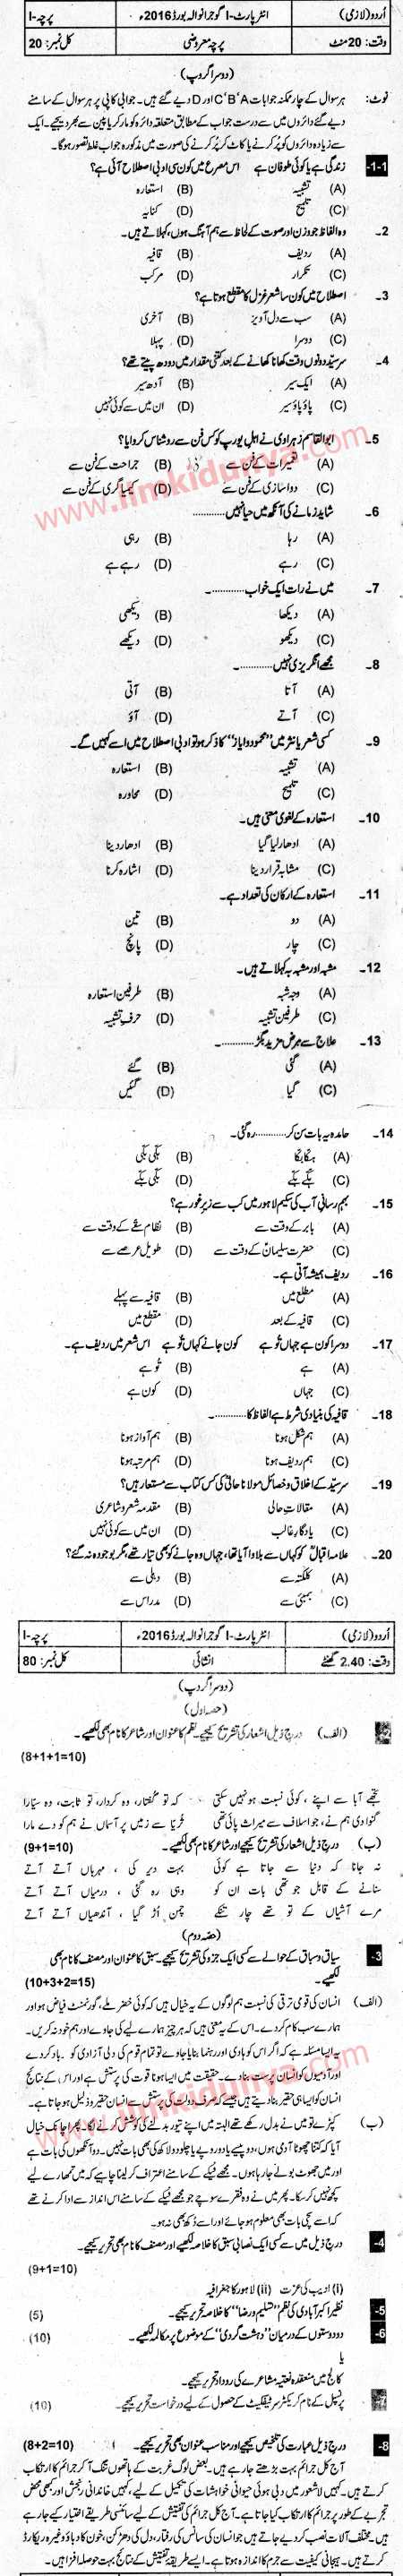 اُردو (لازمی) انٹر پارٹ-I گوجرانوالہ بورڈ 2016ء پرچہ-I
وقت: 20 منٹ پرچہ معروضی کل نمبر: 20
(دوسرا گروپ)
نوٹ: ہر سوال کے چار ممکنہ جوابات C'B'A اور D دیے گئے ہیں۔ جوابی کاپی پر ہر سوال کے سامنے
دیے گئے دائروں میں سے درست جواب کے مطابق متعلقہ دائرہ کو مارکر یا پین سے بھر دیجیے۔ ایک
سے زیادہ دائروں کو پُر کرنے یا کاٹ کر پُر کرنے کی صورت میں مذکورہ جواب غلط تصور ہوگا۔
1-1- زندگی ہے یا کوئی طوفان ہے اس مصرع میں کون سی ادبی اصطلاح آئی ہے؟
(A) تشبیہ (B) استعارہ
(C) تلمیح (D) کنایہ
2- وہ الفاظ جو وزن اور صوت کے لحاظ سے ہم آہنگ ہوں، کہلاتے ہیں۔
(A) ردیف (B) قافیہ
(C) تکرار (D) مرکب
3- اصطلاح میں کون سا شعر غزل کا مقطع ہوتا ہے؟
(A) سب سے دل آویز (B) آخری
(C) دوسرا (D) پہلا
4- سرسیّد دونوں وقت کھانا کھانے کے بعد کتنی مقدار میں دودھ پیتے تھے؟
(A) ایک سیر (B) آدھ سیر
(C) پاؤ پاؤ سیر (D) ان میں سے کوئی نہیں
5- ابوالقاسم زہراوی نے اہلِ یورپ کو کس فن سے روشناس کروایا؟
(A) تعمیرات کے فن سے (B) جراحت کے فن سے
(C) دوا سازی کے فن سے (D) کیمیا گری کے فن سے
6- شاید زمانے کی آنکھ میں حیا نہیں ............
(A) رہا (B) رہی
(C) رہے (D) رہے ہے
7- میں نے رات ایک خواب ............۔
(A) دیکھا (B) دیکھی
(C) دیکھو (D) دیکھے
8- مجھے انگریزی نہیں ............۔
(A) آتا (B) آتی
(C) آتے (D) آؤ
9- کسی شعر یا نثر میں "محمود و ایاز" کا ذکر ہو تو ادبی اصطلاح میں اسے کہیں گے۔
(A) تشبیہ (B) استعارہ
(C) تلمیح (D) محاورہ
10- استعارہ کے لغوی معنی ہیں۔
(A) ادھار لیا گیا (B) ادھار دینا
(C) مشابہ قرار دینا (D) اشارہ کرنا
11- استعارہ کے ارکان کی تعداد ہے۔
(A) دو (B) تین
(C) چار (D) پانچ
12- مشبہ اور مشبہ بہ کہلاتے ہیں۔
(A) وجہ شبہ (B) طرفین استعارہ
(C) طرفین تشبیہ (D) حرفِ تشبیہ
13- علاج سے مرض مزید بگڑ ............۔
(A) گئی (B) گئے
(C) گیا (D) گئیں
14- حامدہ یہ بات سن کر ............ رہ گئی۔
(A) ہکا بکا (B) ہکی بکی
(C) ہکے بکے (D) ہکی بکے
15- بہم رسانی آب کی سکیم لاہور میں کب سے زیرِ غور ہے؟
(A) بابر کے وقت سے (B) نظام سقے کے وقت سے
(C) حضرت سلیمانؑ کے وقت سے (D) طویل عرصے سے
16- ردیف ہمیشہ آتی ہے۔
(A) مطلع میں (B) قافیہ سے پہلے
(C) قافیہ کے بعد (D) مقطع میں
17- دوسرا کون ہے جہاں تُو ہے کون جانے کہاں تُو ہے اس شعر میں ردیف ہے۔
(A) ہے (B) تُو ہے
(C) جہاں (D) کون ہے
18- قافیہ کی بنیادی شرط ہے الفاظ کا ............۔
(A) ہم شکل ہونا (B) ہم آواز ہونا
(C) ہم ردیف ہونا (D) ہم مرتبہ ہونا
19- سرسیّد کے اخلاق و خصائل مولانا حالی کی کس کتاب سے مستعار ہیں؟
(A) مقالاتِ حالی (B) مقدمہ شعر و شاعری
(C) یادگارِ غالب (D) ان میں سے کوئی نہیں
20- علامہ اقبالؒ کو کہاں سے بلاوا آیا تھا، جہاں وہ جانے کو بھی تیار تھے، مگر بوجوہ نہ گئے؟
(A) کلکتہ سے (B) دہلی سے
(C) بمبئی سے (D) مدراس سے
اُردو (لازمی) انٹر پارٹ-I گوجرانوالہ بورڈ 2016ء پرچہ-I
وقت: 2.40 گھنٹے انشائی کل نمبر: 80
(دوسرا گروپ)
(حصہ اول)
2 (الف) درج ذیل اشعار کی تشریح کیجیے۔ نظم کا عنوان اور شاعر کا نام بھی لکھیے۔
(8+1+1=10)
تجھے آبا سے اپنے، کوئی نسبت ہو نہیں سکتی کہ تو گفتار، وہ کردار، تو ثابت، وہ سیّارا
گنوا دی ہم نے، جو اسلاف سے میراث پائی تھی ثریّا سے زمیں پر آسماں نے ہم کو دے مارا
(ب) درج ذیل اشعار کی تشریح کیجیے اور شاعر کا نام بھی لکھیے۔ (9+1=10)
نہ جانا کہ دنیا سے جاتا ہے کوئی بہت دیر کی، مہرباں آتے آتے
سنانے کے قابل جو تھی بات ان کو وہی رہ گئی، درمیاں آتے آتے
مرے آشیاں کے تو تھے چار تنکے چمن اُڑ گیا، آندھیاں آتے آتے
(حصہ دوم)
3- سیاق و سباق کے حوالے سے کسی ایک جزو کی تشریح کیجیے۔ سبق کا عنوان اور مصنف کا نام بھی
لکھیے۔ (10+3+2=15)
(الف) انسان کی قومی ترقی کی نسبت ہم لوگوں کے یہ خیال ہیں کہ کوئی خضر ملے، گورنمنٹ فیاض ہو اور
ہمارے سب کام کر دے۔ اس کے یہ معنی ہیں کہ ہر چیز ہمارے لیے کی جاوے اور ہم خود نہ کریں۔
یہ ایسا مسئلہ ہے کہ اگر اس کو ہادی اور رہنما بنایا جاوے تو تمام قوم کی دلی آزادی کو برباد کر دے
اور آدمیوں کو انسان پرست بنا دے۔ حقیقت میں ایسا ہونا قوت کی پرستش ہے اور اس کے نتائج
انسان کو ایسا ہی حقیر بنا دیتے ہیں جیسے کہ صرف دولت کی پرستش سے انسان حقیر و ذلیل ہو جاتا ہے۔
(ب) کپڑے تو میں نے بدل رکھے تھے البتہ میں نے اپنے تیور بدلنے کی کوشش کرنے لگا۔ پھر اچانک خیال
آیا کہ کتنا چھوٹا آدمی ہوں، دو پیسے یا دو روپے یا چلو دو لاکھ کی بھی بات نہیں۔ دو آنکھوں کی بات ہے
اور میں جھوٹ بولے جا رہا ہوں۔ مجھے ٹیکے کے سامنے اعتراف کر لینا چاہیے کہ میں تمھارے لیے
کچھ نہیں کر سکا۔ پھر میں نے وہ فقرے سوچے جو مجھے ٹیکے کے سامنے اس انداز سے ادا کرنے تھے
کہ اسے سچی بات بھی معلوم ہو جائے اور اسے دُکھ بھی نہ ہو۔
4- درج ذیل میں سے کسی ایک نصابی سبق کا خلاصہ لکھیے اور مصنف کا نام بھی تحریر کیجیے۔
(9+1=10)
(i) ادیب کی عزت (ii) لاہور کا جغرافیہ
5- نظیر اکبر آبادی کی نظم "تسلیم و رضا" کا خلاصہ تحریر کیجیے۔ (5)
6- دو دوستوں کے درمیان "دہشت گردی" کے موضوع پر مکالمہ لکھیے۔ (10)
یا
کالج میں منعقدہ نعتیہ مشاعرے کی روداد تحریر کیجیے۔
7- پرنسپل کے نام کریکٹر سرٹیفکیٹ کے حصول کے لیے درخواست تحریر کیجیے۔ (10)
8- درج ذیل عبارت کی تلخیص کیجیے اور مناسب عنوان بھی تحریر کیجیے۔ (8+2=10)
آج کل جرائم بہت بڑھتے جا رہے ہیں۔ بعض لوگ غربت کے ہاتھوں تنگ آ کر جرائم کا ارتکاب
کرتے ہیں۔ کہیں لاشعور میں دبی ہوئی حیوانی خواہشات کی تکمیل کے لیے، کہیں خاندانی رنجش اور کبھی محض
تجربے کے طور پر جرائم کا ارتکاب کیا جاتا ہے۔ آج کل جرائم کی تفتیش کے لیے سائنسی طریقے اختیار کیے جا رہے
ہیں۔ مختلف آلات نصب کر دیے جاتے ہیں جو انسان کی سانس کی رفتار، دل کی دھڑکن، خون کا دباؤ وغیرہ ریکارڈ
کرتے ہیں۔ ہیجانی کیفیت سے جرم کا اندازہ ہوتا ہے۔ ایسے طریقۂ تفتیش کے نتائج بہت حوصلہ افزا ہیں۔
www.ilmkidunya.com
www.ilmkidunya.com